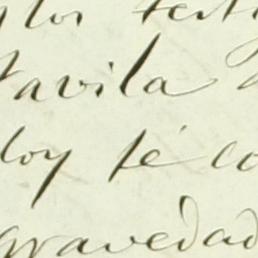 y los testi
tavila
doy fé co
gravedad